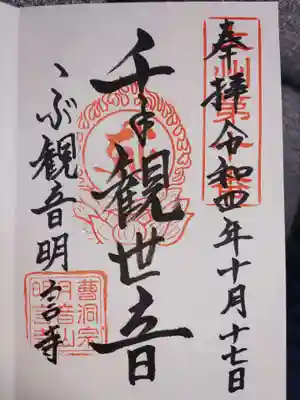 奉拝 令和四年十月十七日
千手観世音
こぶ観音明言寺
曹洞宗